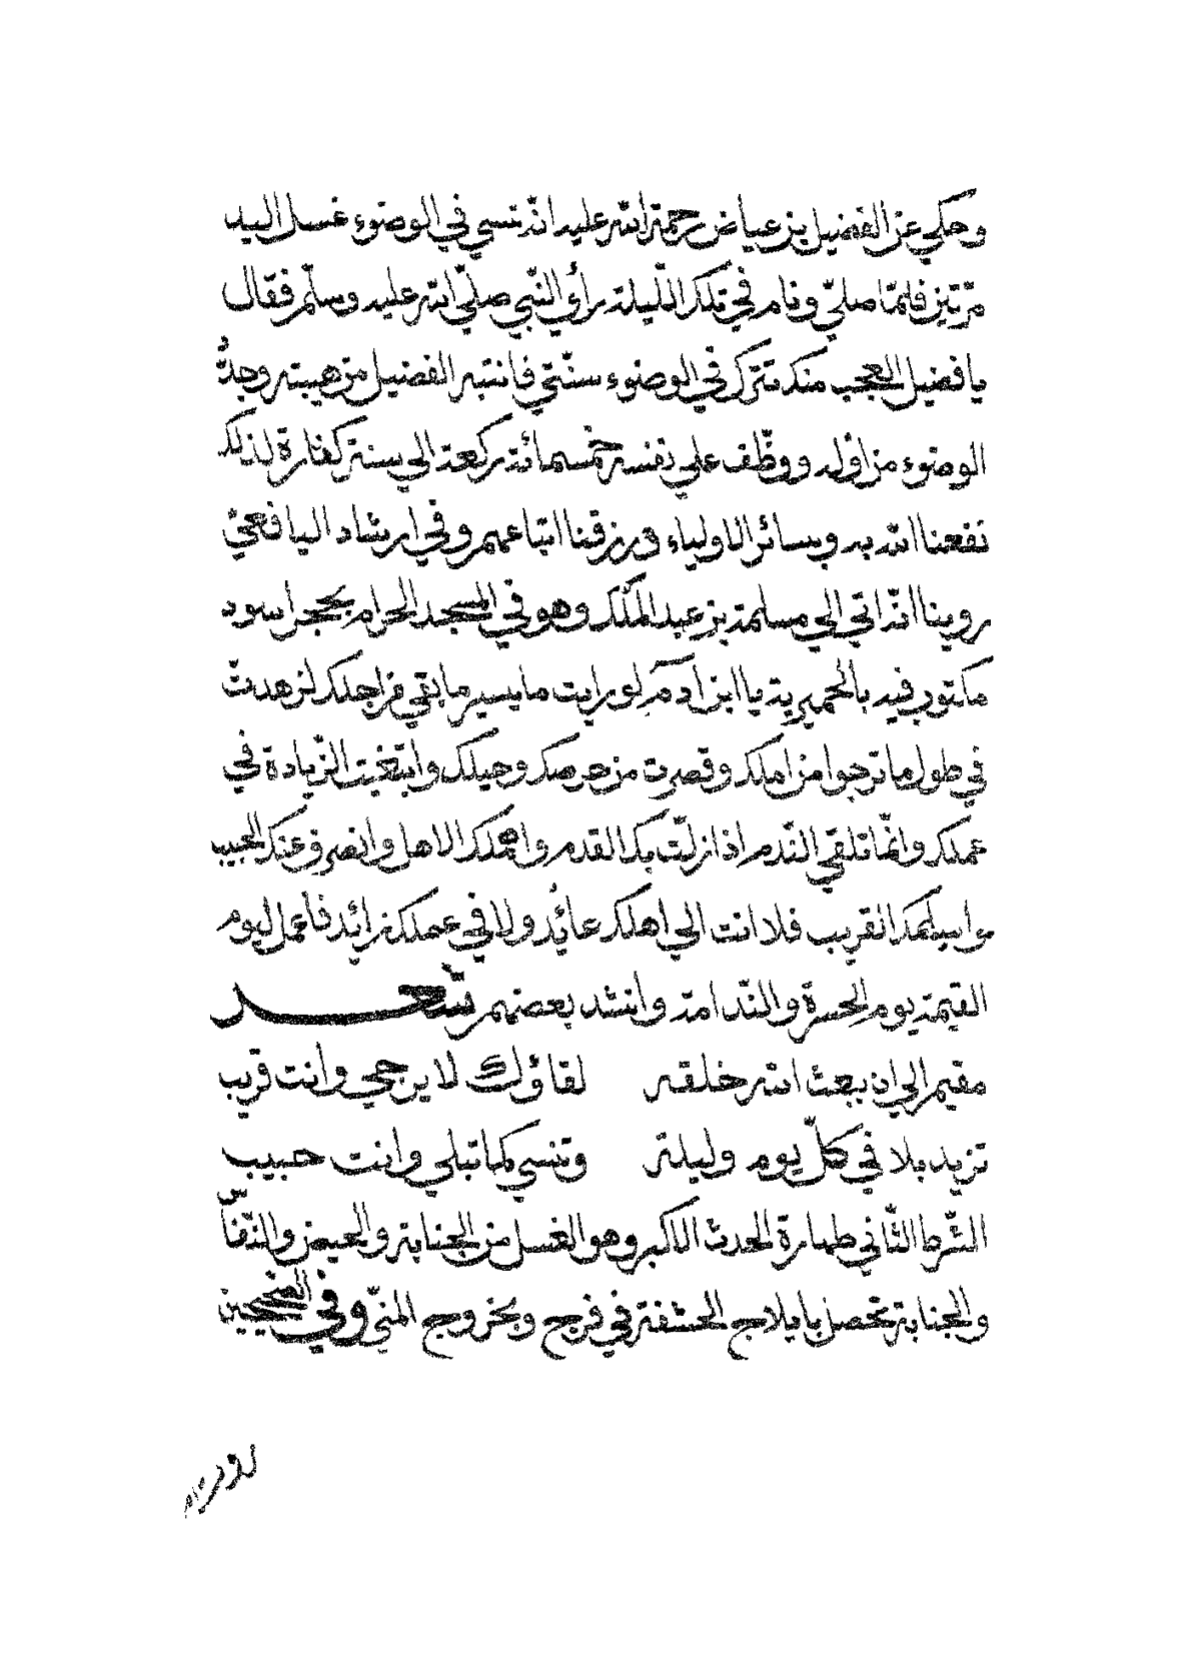 وحكي عن الفضيل بن عياض رحمة الله عليه انه نسي في الوضوء غسل اليد
مرتين فلمّا صلّي ونام في تلك اللّيلة رأي النّبي صلّي الله عليه وسلّم فقال
يا فضيل العجب منك تترك في الوضوء سنّتي فانتبه الفضيل من هيبته وجدّد
الوضوء من اوّله ووظّف علي نفسه خمسمائة ركعة الي سنة كفارة لذلك
نفعنا الله به وبسائر الاولياء ورزقنا اتباعهم وفي ارشاد اليافعيّ
روينا انّه اتي الي مسلمة بن عبد الملك وهو في المسجد الحرام بحجر اسود
مكتوب فيه بالحميرية يا ابن آدم لو رايت ما يسير ما بقي من اجلك لزهدت
في طول ما ترجوا من املك وقصرت من حرصك وحيلك وابتغيت الزّيادة في
عملك وانّما تلقي النّدم اذا زلّت بك القدم واسلمك الاهل وانصرف عنك الحبيب
واسلمك القريب فلا انت الي اهلك عائد ولا في عملك زائد فاعمل ليوم
القيمة يوم الحسرة والنّدامة وانشد بعضهم شعر
مقيم الي ان يبعث الله خلقه لقاؤك لا يرجي وانت قريب
تزيد بلا في كلّ يوم وليلة وتنسي كما تبلي وانت حبيب
الشّرط الثّاني طهارة الحدث الاكبر وهو الغسل من الجنابة والحيض والنّفاس
والجنابة تحصل بايلاج الحشفة في فرج وبخروج المنيّ وفي الصحيحين